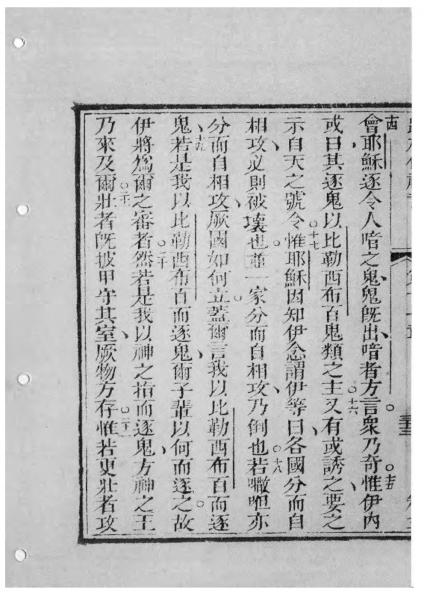 十四
會耶穌逐令人喑之鬼鬼旣出喑者方言衆乃奇十五惟伊內
或曰其逐鬼以比勒西布百鬼類之主十六又有或誘之要之
示自天之號令十七惟耶穌因知伊念謂伊等曰各國分而自
相攻必則被壞也並一家分而自相攻乃倒也十八若𠼻呾亦
分而自相攻厥國如何立蓋爾言我以比勒西布百而逐
鬼十九若是我以比勒西布百而逐鬼爾子輩以何而逐之故
伊將爲爾之審者二十然若是我以神之指而逐鬼方神之王
乃來及爾二一壯者旣披甲守其室厥物方存二二惟若更壯者攻